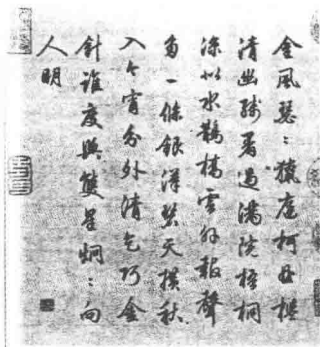 金風瑟〻庭柯
清幽殘暑過滿院梧桐
涼似水鵲橋雲外報聲
多一條銀漢界天橫秋
入今宵分外清乞巧金
針誰度與雙星炯〻向
人明